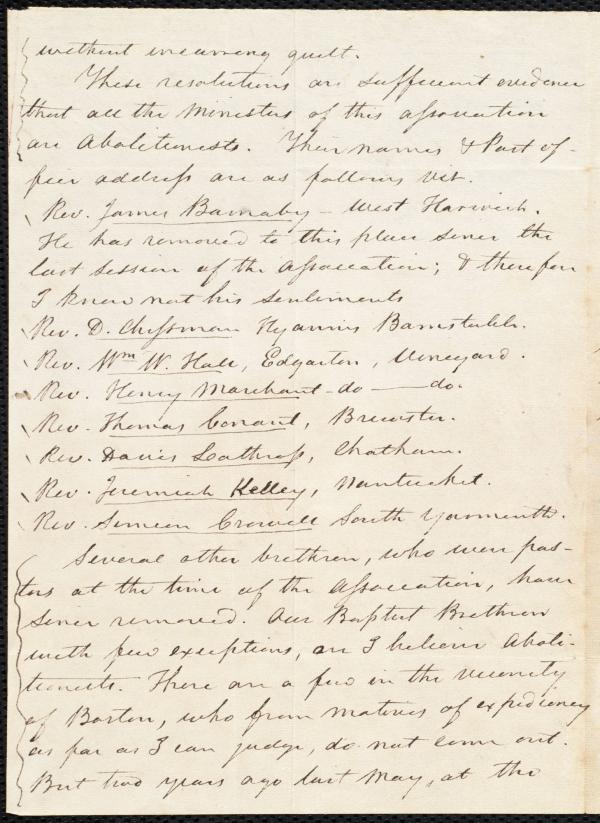 without incurring guilt.
These resolutions are sufficient evidence
that all the Ministers of this association
are Abolitionists. Their names & Post of-
fice address are as follows viz.
Rev. James Barnaby - West Harwich.
He has removed to this place since the
last session of the Association; & therefore
I know not his sentiments
Rev. D. Chessman Hyannis Barnstable.
Rev. Wm W. Hall, Edgarton, Vineyard.
Rev. Henry Marchant - do — do.
Rev. Thomas Conant, Brewster.
Rev. Davis Lothrop, Chatham.
Rev. Jeremiah Kelley, Nantucket.
Rev. Simeon Crowell South Yarmouth.
Several other brethren, who were pas-
tors at the time of the Association, have
since removed. Our Baptist Brethren
with few exceptions, are I believe Aboli-
tionists. There are a few in the vicinity
of Boston, who from motives of expediency
as far as I can judge, do not come out.
But two years ago last May, at the